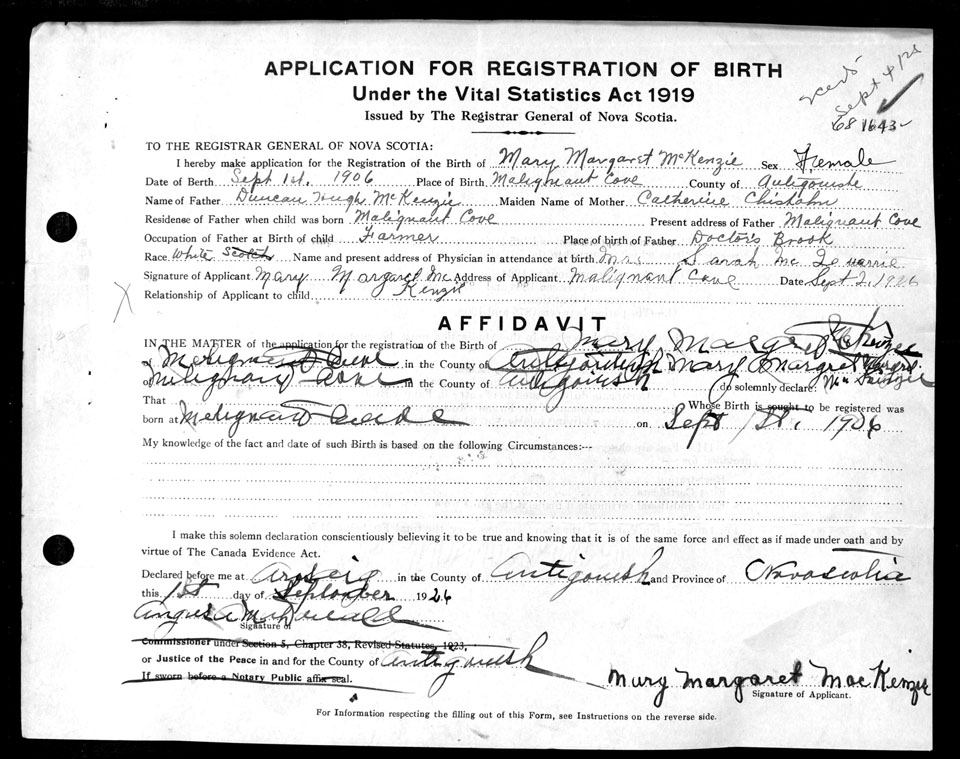 APPLICATION FOR REGISTRATION OF BIRTH
Under the Vital Statistics Act 1919
Issued by The Registrar General of Nova Scotia.
Sept 4/26
68 1643
TO THE REGISTRAR GENERAL OF NOVA SCOTIA:
I hereby make application for the Registration of the Birth of Mary Margaret McKenzie Sex Female
Date of Birth Sept 1st. 1906 Place of Birth Malignant Cove County of Antigonish
Name of Father Duncan Hugh McKenzie Maiden Name of Mother Catherine Chisholm
Residense of Father when child was born Malignant Cove Present address of Father Malignant Cove
Occupation of Father at Birth of child Farmer Place of birth of Father Doctor's Brook
Race White Scotch Name and present address of Physician in attendance at birth Mrs Sarah Mc
Signature of Applicant Mary Margaret McKenzie Address of Applicant Malignant Cove Date Sept 2, 1926
Relationship of Applicant to child
AFFIDAVIT
IN THE MATTER of the application for the registration of the Birth of Mary Margret
of in the County of Antigonish Mary Margret
of in the County of Antigonish do solemnly declare:
That Whose Birth is sought to be registered was
born at on Sept 1st. 1906
My knowledge of the fact and date of such Birth is based on the following Circumstances:--
I make this solemn declaration conscientiously believing it to be true and knowing that it is of the same force and effect as if made under oath and by
virtue of The Canada Evidence Act.
Declared before me at Arisaig in the County of Antigonish and Province of Novascotia
this 1st day of September 1926
Angus A McDonald
Signature of
Commissioner under Section 5, Chapter 38, Revised Statutes, 1923,
or Justice of the Peace in and for the County of Antigonish
If sworn before a Notary Public affix seal.
Mary Margaret MacKenzie
Signature of Applicant.
For Information respecting the filling out of this Form, see Instructions on the reverse side.